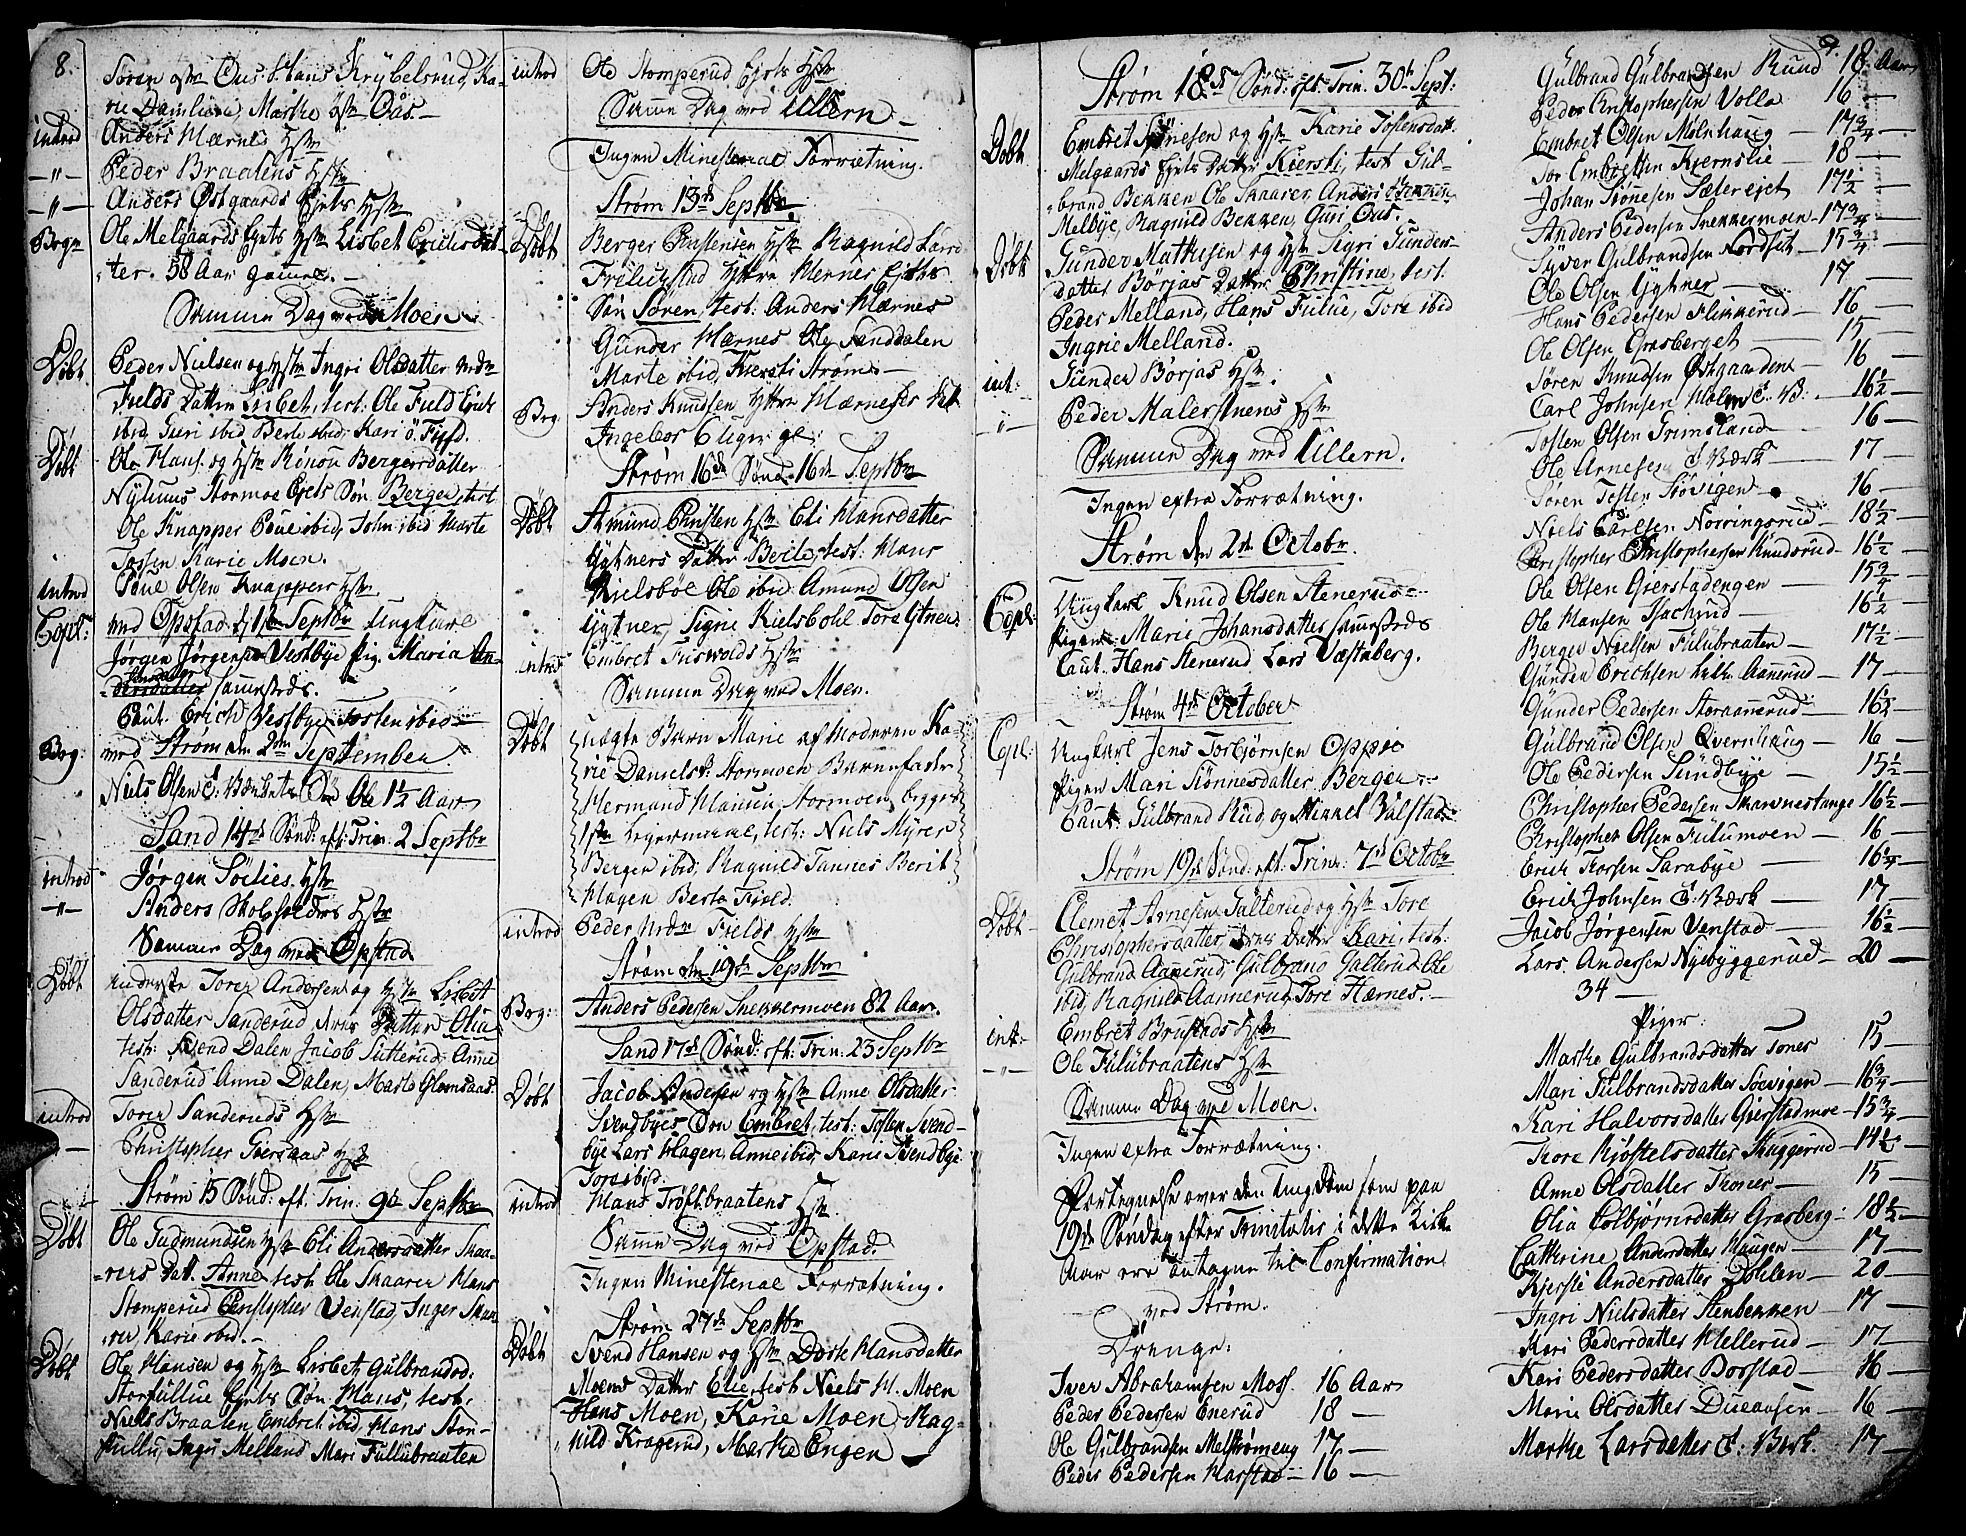 8.
Søren ... Ous. Hans Krÿbelsrud, Ka-
rie Damlien, Marthe ... Oås
introd Anders Hærnes Hstr
—"— Peder Braatens Hstr
—"— Anders Østgaards Ejets Hstr
Begr Ole Melgaards Ejets Hstr Lisbet Erichsdat-
ter. 58 Aar gamel.
Samme Dag ved Moen
Døbt Peder Nielsen og Hstr Ingri Olsdatter
Fields Datter Lisbet, test: Ole Field
ibid, Guri ibid Berte ibid, Kari
Døbt Ole Hans. og Hstr Rønou Bergersdatter
Nyhuus Stormoe Ejets Søn Berger, test
Ole Knapper Poul ibid, John ibid Marte
Tossen Karie Moen.
introd Poul Olsen Knapper Hstr
Copl: ved Opstad d: 1ste Septbr Ungkarl
Jørgen Jørgensen Vestbye pig. Maria An-
dersdatter sammesteds.
Caut. Erich Vestbye Tosten ibid
Beg: ved Strøm den 2den September.
Niels Olsen Søn Ole 1½ Aar
Sand 14de Sønd: eft: Trin: 2 Septbr
introd Jørgen Sølies Hstr
—"— Anders Holsfelders Hstr
Samme Dag ved Opstad
Døbt Torer Andersen og Hstr Lisbet
Olsdatter Sanderud, deres Datter Olia
test: Svend Dalen Jacob Sætterud, Anne
Sanderud Anne Dalen, Marte Glomsaas.
introd Torer Sanderuds Hstr
— Christopher Gersaas Hstr
Strøm 15 Sønd: eft: Trin. 9de Septbr
Døbt Ole Gudmundsen Hstr Eli Andersdatter Skaa-
rers Datt. Anne test: Ole Skaarer Hans
Stomperud Christopher Venstad, Inger Skaa-
rer Karie ibid.
Døbt Ole Hansen og Hstr Lisbet Gulbrandsd:
Storfullue Ejets Søn Hans, test:
Niels Braaten, Embret ibid, Hans Stor-
fullu, Ingri Melland Mari Fullubraaten
introd Ole Stomperud Ejets Hstr
Samme Dag ved Ullern
Ingen Minesterial Forretning.
Strøm 13de Septbr.
Døbt Berger Hstr Ragnild Lars
Fridulstad Yttre Hernes Ejets
Søn Søren, test: Anders Hærnes
Gunder Hærnes Ole Sanddalen
Marte ibid, Kiersti Strøm
Beg. Anders Knudsen Yttre Hærnes
Ingebor
Strøm 16de Sønd: 16de Septbr
Døbt Amund Christen Hstr Eli Hansdatter
Gytners Datter Berte, test: Hans
Kielsbøl Ole ibid Amund Olsen
Gytner, Sigrie Kielsbøhl Tore Gytner.
introd Embret Friswolds Hstr
Samme Dag ved Moen.
Døbt uægte Barn Marie af Moderen Ka-
rie Daniels D: Stormoen Barnefader
Hermand Hansen Stormoen, begges
1ste Legermaal, test: Niels Myrer
Berger ibid, Ragnild Tannes Berit
Hagen Berte Field.
introd Peder Fields Hstr
Strøm den 19de Septbr
Beg: Anders Pedersen Snekkermoen 82 Aar.
Sand 17de Sønd: eft: Trin: 23 Septbr
Døbt Jacob Andersen og Hstr Anne Olsdatter
Svendbyes Søn Embret, test: Tosten Svend-
bye Lars Hagen, Anne ibid, Karie Svendbye
Tore ibid.
introd Hans Trøftbraatens Hstr.
Samme Dag ved Opstad.
Ingen Minesterial Forretning.
Strøm 27de Septbr
Døbt Svend Hansen og Hstr Dorte Hansdatter
Moens Datter Elie, test Niels H. Moen
Hans Moen, Karie Moen Rag-
nild Kragerud, Marthe Engen
9.
Strøm 18de Sønd: eft: Trin. 30te Sept:
Døbt Embret Tønesen og Hstr Karie Tostensdatt.
Melgaards Ejets Datter Kiersti, test Gul-
brand Bekken Ole Skaarer, Anders
Melbye, Ragnild Bekken, Guri Ous.
Døbt Gunder Mathisen og Hstr Sigri Gunders-
datter Børjas Datter Christine, test:
Peder Melland, Hans Fulue, Tore ibid
Ingrie Melland.
int: Gunder Børjas Hstr.
—"— Peder Malerstuens Hstr
Samme Dag ved Ullern.
Ingen extra Forretning.
Strøm den 2den Octobr.
Copl: Ungkarl Knud Olsen Stenerud
Pigen Marie Johansdatter sammesteds
Caut. Hans Stenerud Lars Væstaberg.
Strøm 4de October
Copl: Ungkarl Jens Torbjørnsen Oppie
Pigen Mari Tønnesdatter Berger
Caut: Gulbrand Rud og Mikkel Valstad
Strøm 19de Sønd: eft: Trin: 7de Octobr
Døbt Clemet Arnesen Galterud og Hstr Tore
Christophersdatter, deres Datter Kari, test:
Gulbrand Aannerud, Gulbrand Galterud Ole
ibid, Ragnild Aannerud, Tore Hærnes.
int: Embret Brustads Hstr
—"— Ole Fulubraatens Hstr
Samme Dag ved Moen.
Ingen extra Forretning.
Fortegnelse over den Ungdom som paa
19de Søndag efter Trinitatis i dette Kirke
Aar ere antagne til Confirmation
ved Strøm.
Drenge:
Iver Abrahamsen Moss. 16 Aar
Peder Pedersen Enerud 18 —
Ole Gulbrandsen Malstrømeng 17 —
Peder Pedersen Harstad 16 —
Gulbrand Gulbrandsen Ruud 18 Aar
Peder Christophersen Volla 16 —
Embret Olsen Mølnhaug 17¾
Tor Embretsen Kjernslie 18 —
Johan Tønnesen Sæter ejet 17½
Anders Pedersen Snekkermoen 17¾
Syver Gulbrandsen Nordset 15¾
Ole Olsen Gytner 17
Hans Pedersen Flikkerud 16 —
Ole Olsen Grasberget 15 —
Søren Knudsen Østgaarden 16 —
Carl Johnsen Holm O: V: 16½
Tosten Olsen Grimsland 16
Ole Arnesen O: Værk 17 —
Søren Tosten Støvigen 16 —
Niels Carlsen Norringsrud 18½ —
Christopher Christophersen Knudsrud 16½ —
Ole Olsen Gjerstadengen 15¾
Ole Hansen Isachrud 16½ —
Berger Nielsen Fulubraaten 17½ —
Gunder Erichsen Aannerud 17 —
Gunder Pedersen Storaannerud 16½ —
Gulbrand Olsen Qvernhaug 16 —
Ole Pedersen Sundbye 15½ —
Christopher Pedersen Skavnestange 16½ —
Christopher Olsen Fulumoen 16 —
Erich Torsen Sarabye 16¼ —
Erich Johnsen O: Værk 17 —
Jacob Jørgensen Venstad 16½ —
Lars Andersen Nyebyggerud 20 —
34 —
Piger:
Marthe Gulbrandsdatter Toner 15 —
Mari Gulbrandsdatter Støvigen 16¾
Kari Halvorsdatter Gjerstadmoe 15¾
Tore Kjøstelsdatter Skuggerud 14½
Anne Olsdatter Toner 15 —
Olia Colbjørnsdatter Grasberg 18½ —
Cathrine Andersdatter Haugen 17 —
Kjersti Andersdatter Dohlen 20 —
Ingri Nielsdatter Stenbekken 17 —
Kari Pedersdatter Hellerud 17 —
Kari Pedersdatter Borstad 16 —
Marie Olsdatter Dueaasen 16 —
Marthe Larsdatter O: Verk 17 —